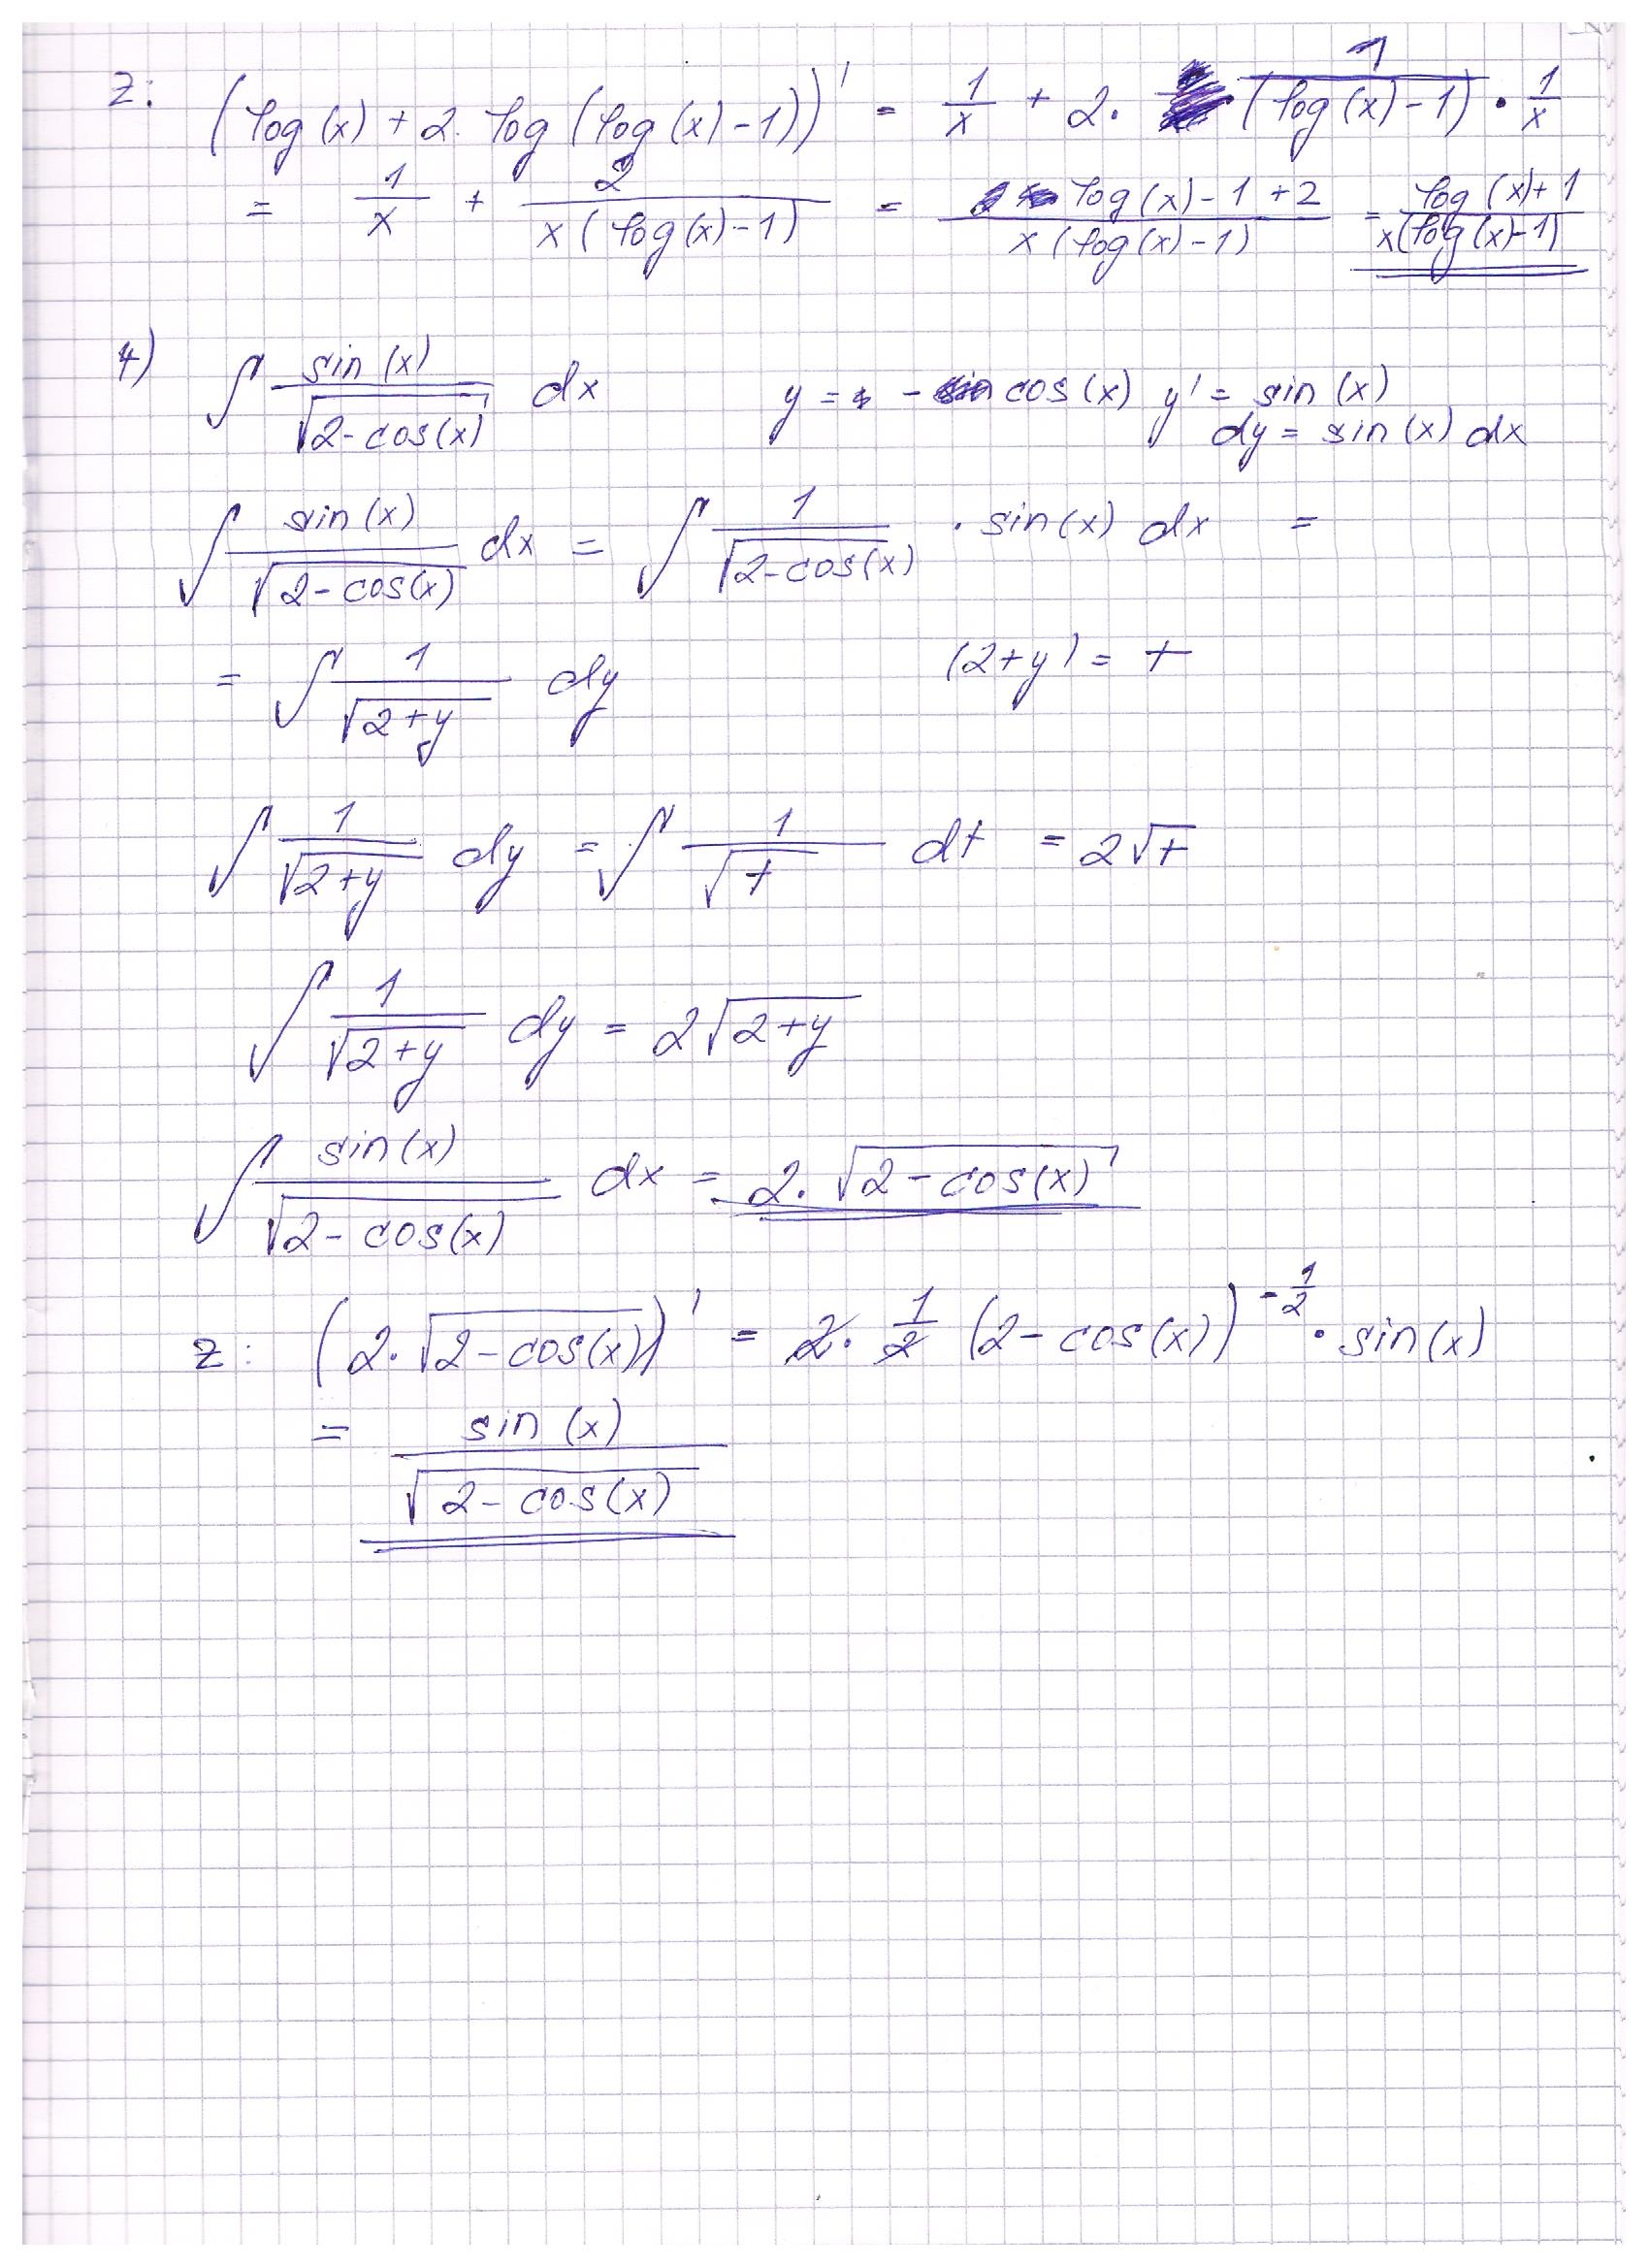 z: (log(x) + 2. log(log(x) - 1))' = 1/x + 2. 1/(log(x) - 1) · 1/x
= 1/x + 2/(x(log(x) - 1)) = (log(x) - 1 + 2)/(x(log(x) - 1)) = (log(x) + 1)/(x(log(x) - 1))
4) ∫ sin(x)/√(2 - cos(x)) dx y = - cos(x) y' = sin(x)
dy = sin(x) dx
∫ sin(x)/√(2 - cos(x)) dx = ∫ 1/√(2 - cos(x)) · sin(x) dx =
= ∫ 1/√(2 + y) dy (2 + y) = t
∫ 1/√(2 + y) dy = ∫ 1/√t dt = 2√t
∫ 1/√(2 + y) dy = 2√(2 + y)
∫ sin(x)/√(2 - cos(x)) dx = 2. √(2 - cos(x))
z: (2. √(2 - cos(x)))' = 2. 1/2 (2 - cos(x))^(-1/2) · sin(x)
= sin(x)/√(2 - cos(x))